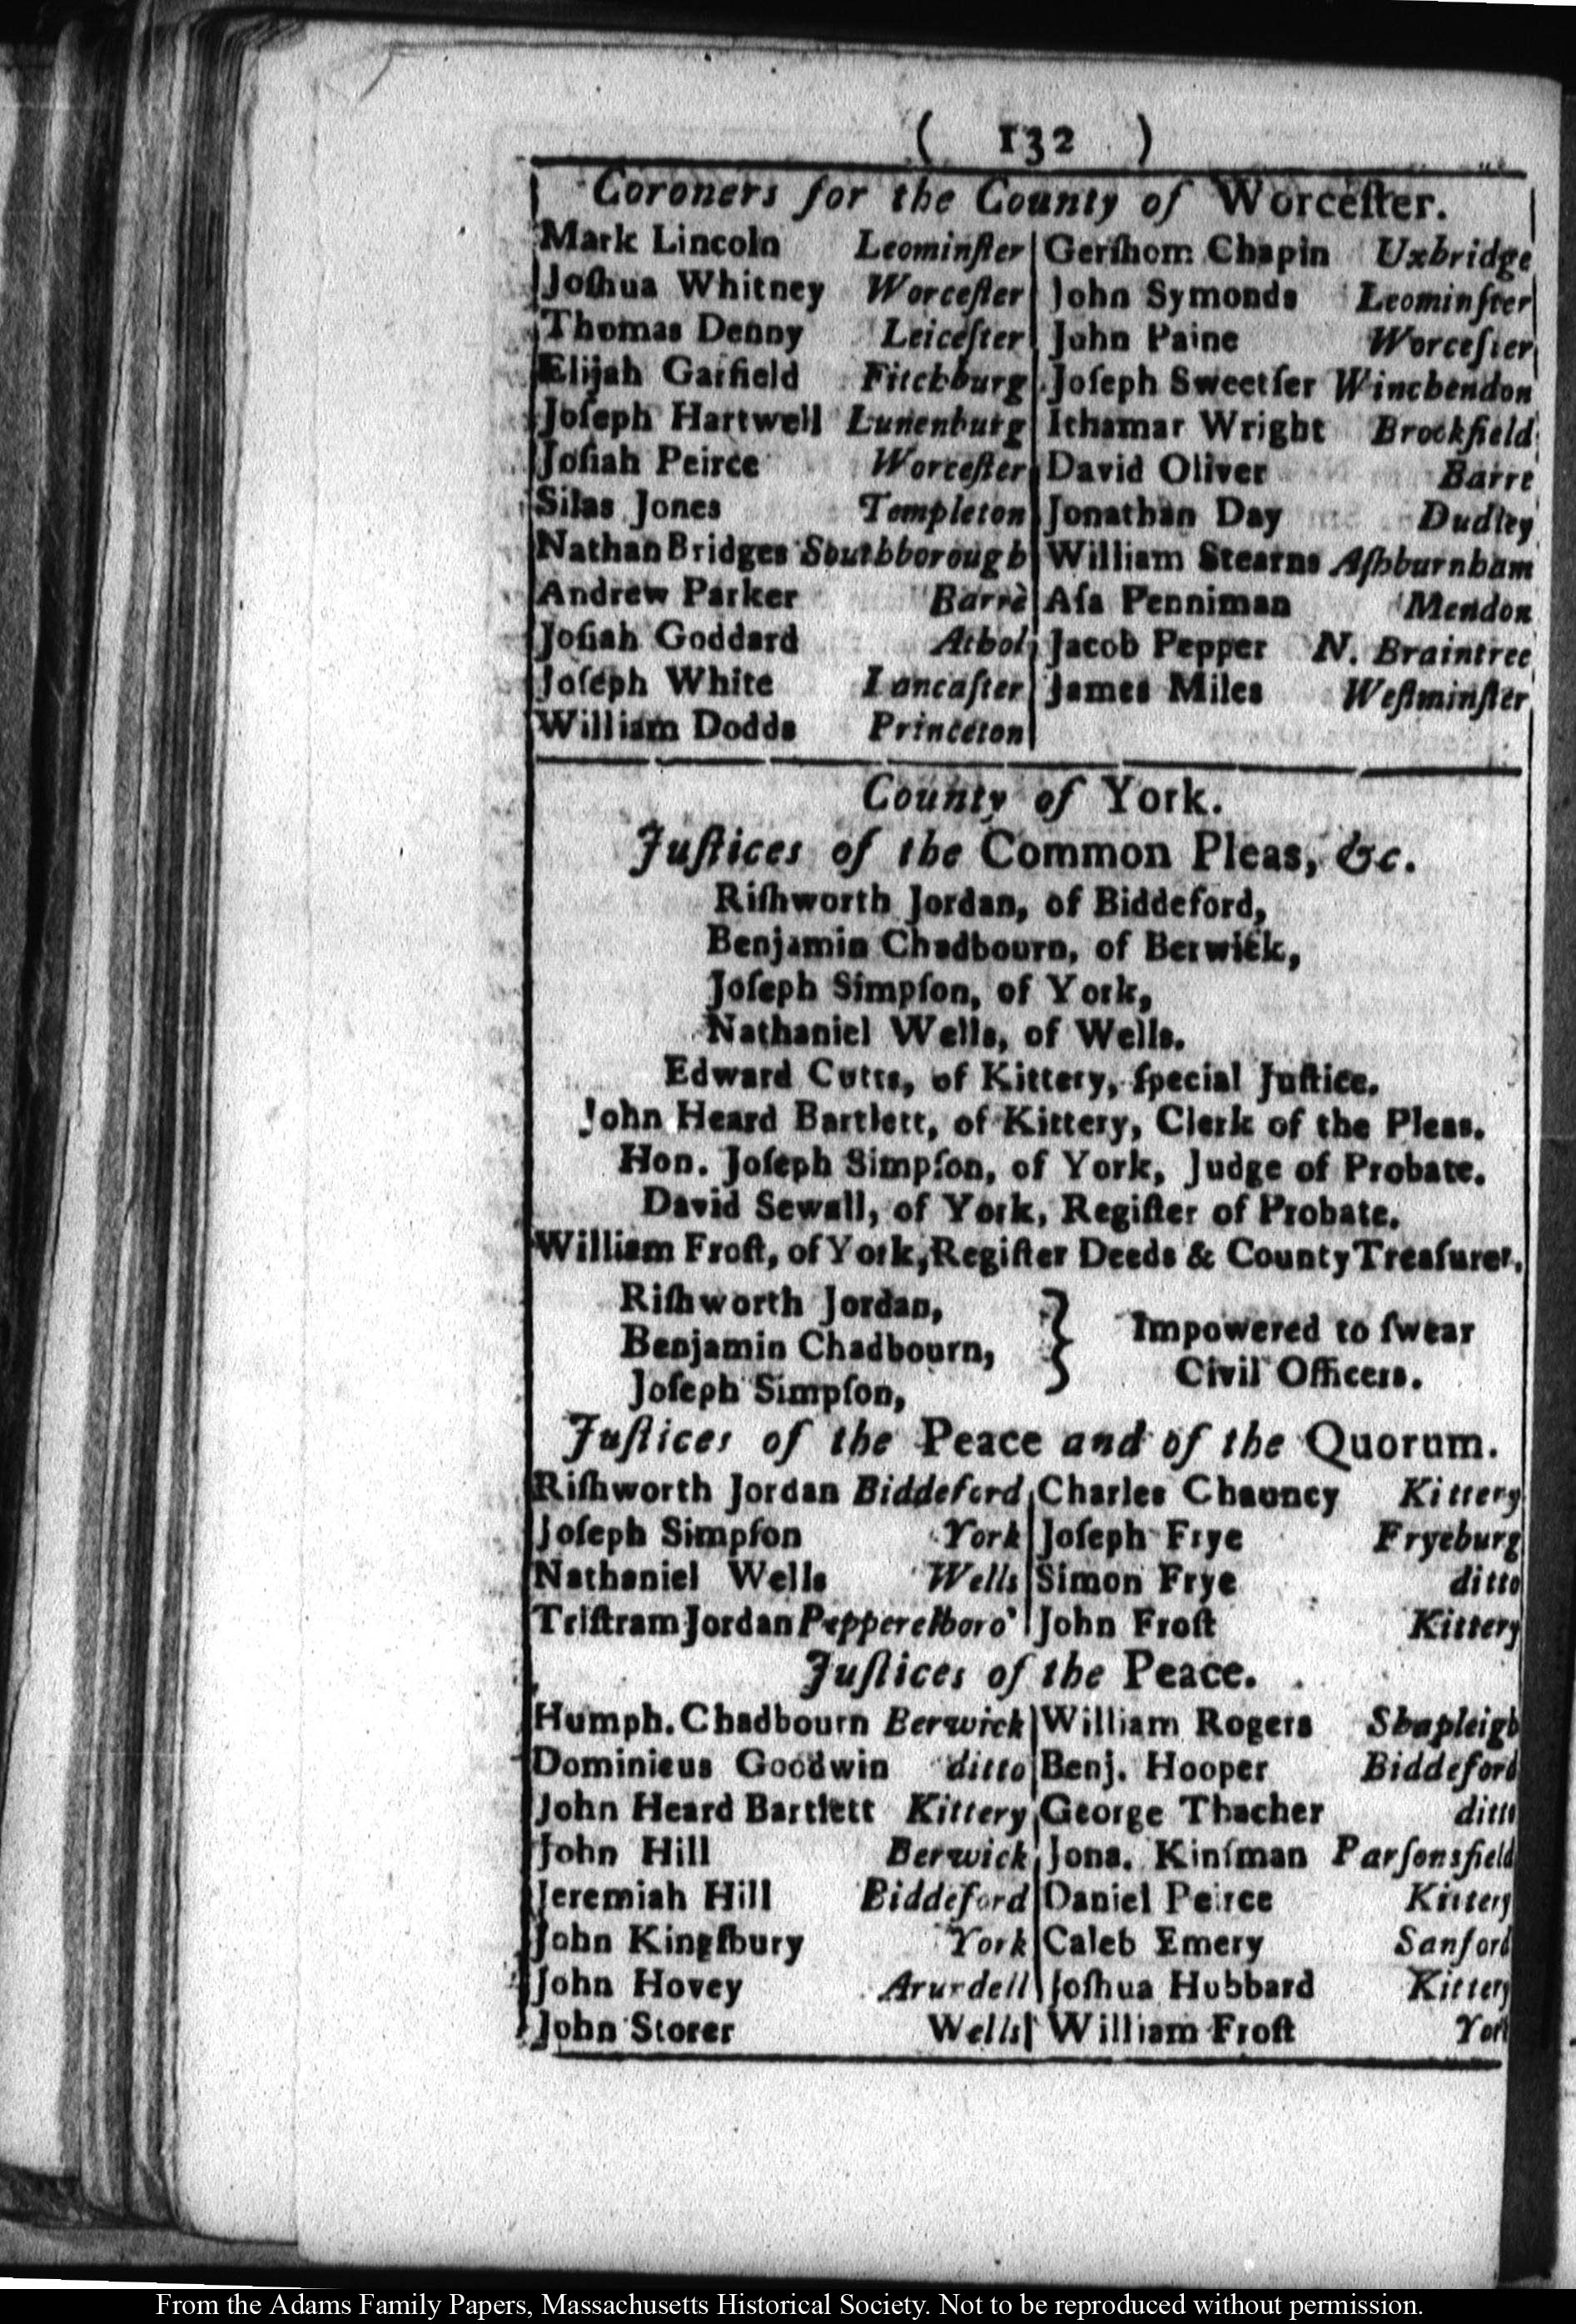 ( 132 )
Coroners for the County of Worceſter.
Mark Lincoln Leominſter
Joſhua Whitney Worceſter
Thomas Denny Leiceſter
Elijah Garfield Fitchburg
Joſeph Hartwell Lunenburg
Joſiah Peirce Worceſter
Silas Jones Templeton
Nathan Bridges Southborough
Andrew Parker Barrè
Joſiah Goddard Athol
Joſeph White Lancaſter
William Dodds Princeton
Gerſhom Chapin Uxbridge
John Symonds Leominſter
John Paine Worceſter
Joſeph Sweetſer Winchendon
Ithamar Wright Brookfield
David Oliver Barre
Jonathan Day Dudley
William Stearns Aſhburnham
Aſa Penniman Mendon
Jacob Pepper N. Braintree
James Miles Weſtminſter
County of York.
Juſtices of the Common Pleas, &c.
Riſhworth Jordan, of Biddeford,
Benjamin Chadbourn, of Berwick,
Joſeph Simpſon, of York,
Nathaniel Wells, of Wells.
Edward Cutts, of Kittery, ſpecial Juſtice.
John Heard Bartlett, of Kittery, Clerk of the Pleas.
Hon. Joſeph Simpſon, of York, Judge of Probate.
David Sewall, of York, Regiſter of Probate.
William Froſt, of York, Regiſter Deeds & County Treaſurer.
Riſhworth Jordan,
Benjamin Chadbourn,
Joſeph Simpſon,
} Impowered to ſwear
Civil Officers.
Juſtices of the Peace and of the Quorum.
Riſhworth Jordan Biddeford
Joſeph Simpſon York
Nathaniel Wells Wells
Triſtram Jordan Pepperelboro'
Charles Chauncy Kittery
Joſeph Frye Fryeburg
Simon Frye ditto
John Froſt Kittery
Juſtices of the Peace.
Humph. Chadbourn Berwick
Dominicus Goodwin ditto
John Heard Bartlett Kittery
John Hill Berwick
Jeremiah Hill Biddeford
John Kingſbury York
John Hovey Arurdell
John Storer Wells
William Rogers Shapleigh
Benj. Hooper Biddeford
George Thacher ditto
Jona. Kinſman Parſonsfield
Daniel Peirce Kittery
Caleb Emery Sanford
Joſhua Hubbard Kittery
William Froſt York
From the Adams Family Papers, Massachusetts Historical Society. Not to be reproduced without permission.